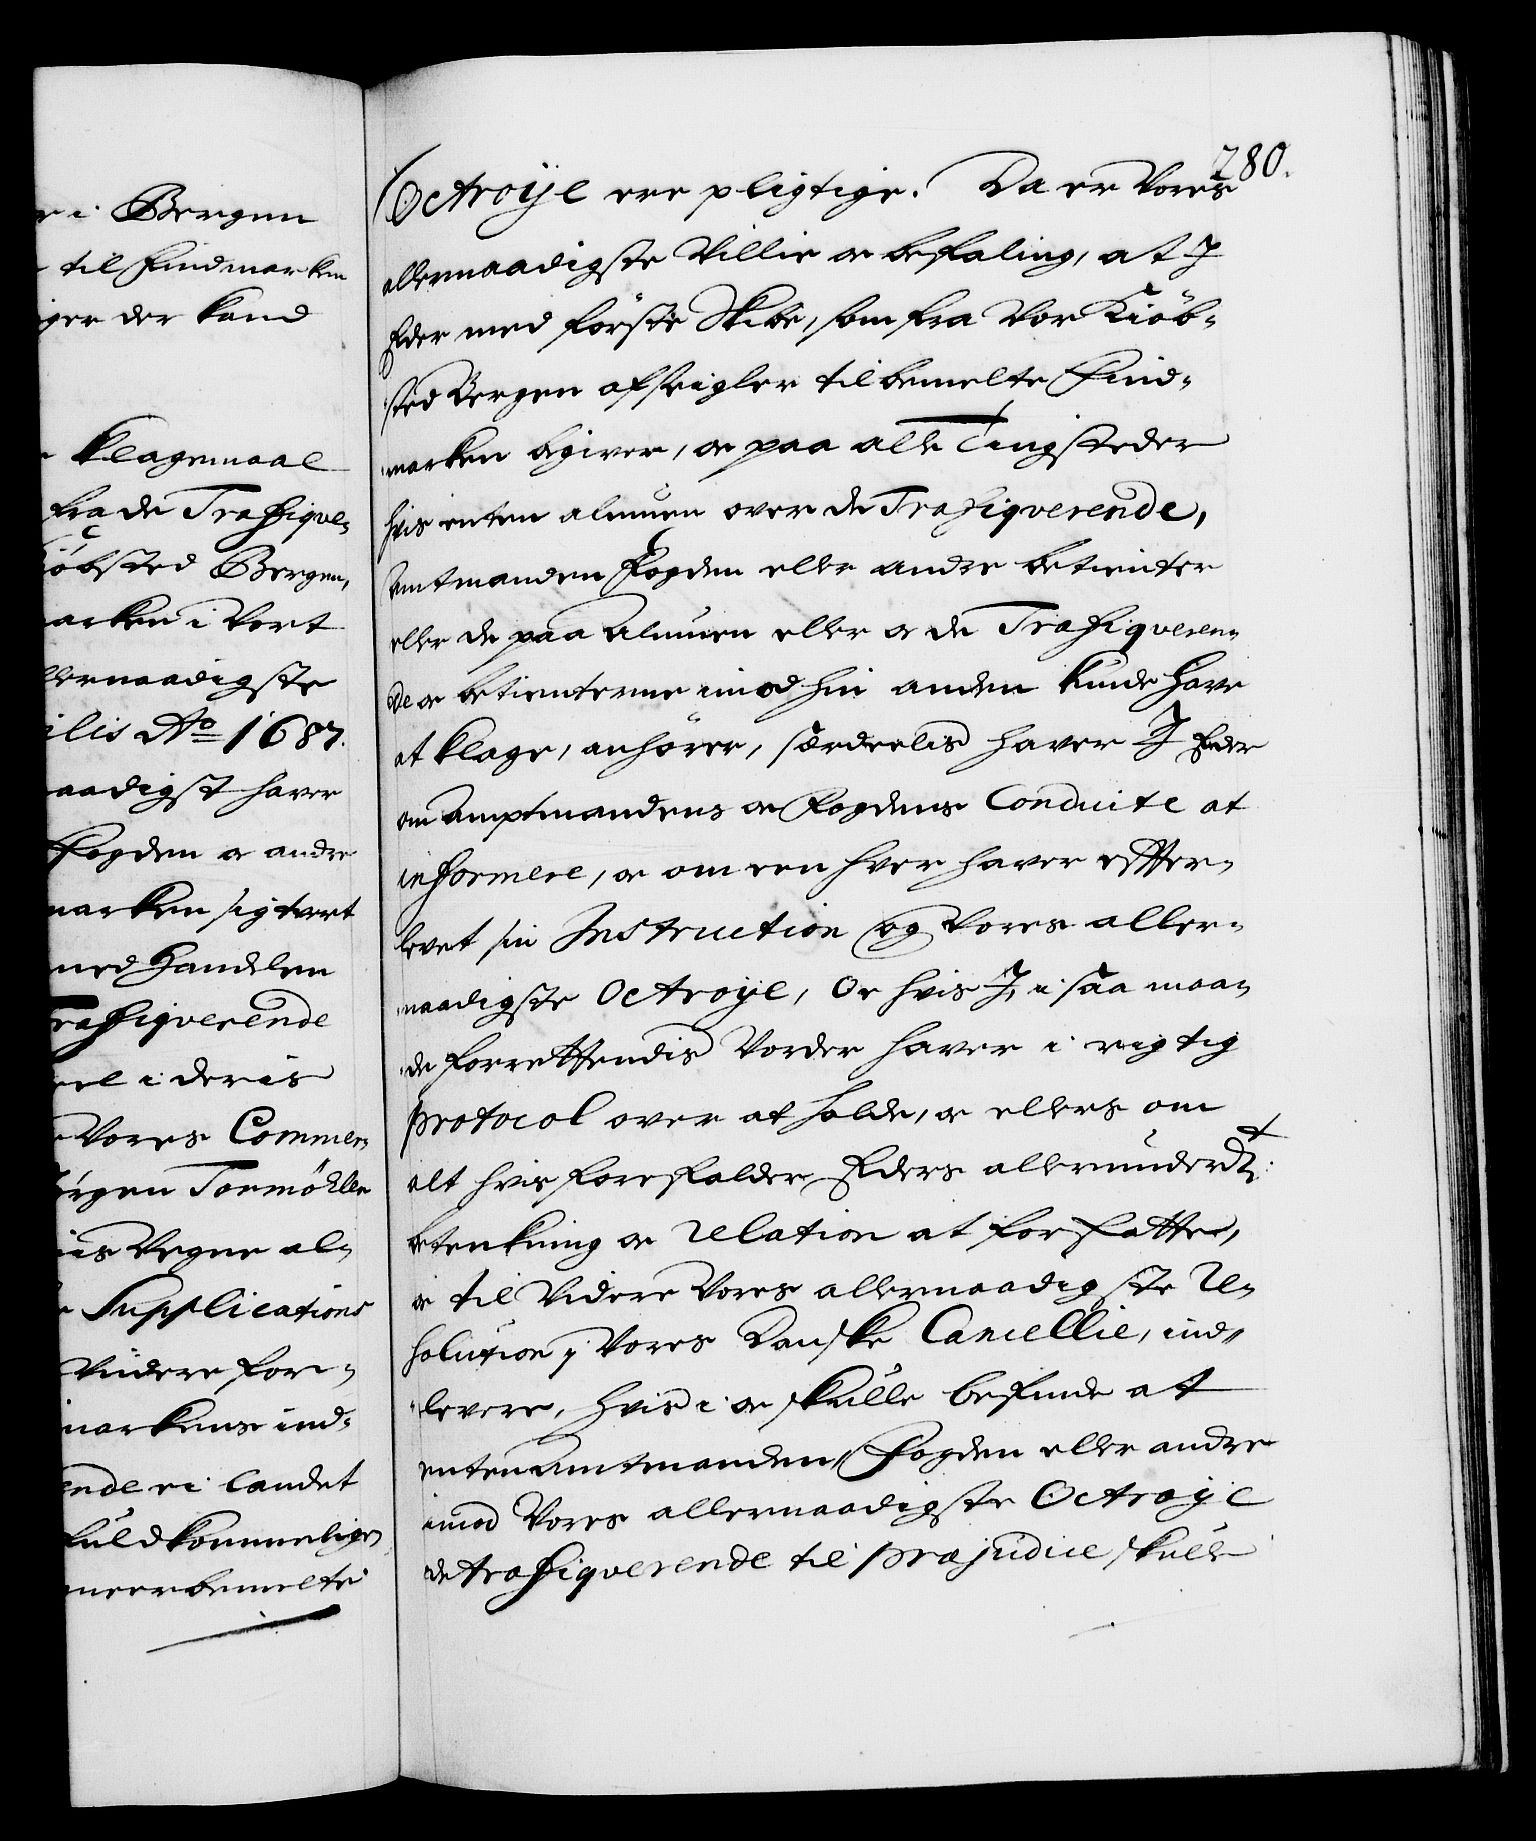 r i Bergen
til Findmarken
iger der kand
Klagemaal
fra de Trafique-
iöbsted Bergen,
arken i Vort
lernaadigste
ilis Ao 1687.
aadigst haver
Fogden oc andre
marken sigtvert
med Handelen
Trafiqverende
eel i deris
Vores Commer-
örgen Tormöhlle
iis Vegne al-
Supplications
Videre for-
markens ind-
ende i Landet
fuldkommelige
meerbemelte
280.
Octroÿe ere pligtige. Da er Vores
allernaadigste Villie oc befaling, at J
Eder med förste Skibe, som fra Vor Kiöb-
sted Bergen afseigler til bemelte Find-
marken begiver, oc paa alle Tingsteder
hvis enten almuen over de Trafiqverende,
Amtmanden Fogden eller andre betienter
eller de paa Almuen eller oc de Trafiqveren-
de oc betienterne imod hin anden kunde have
at klage, anhörer, særdeelis haver J Eder
om Amptmandens oc Fogdens Conduite at
informere, oc om een hver haver effter-
levet sin Instruction og Vores aller-
naadigste Octroÿe, Oc hvis J, i saa maa-
de forrettendis Vorder haver i rigtig
protocol over at holde, oc ellers om
alt hvis forefalder Eders allerunderdt:
betenkning oc relation at forfatte,
oc til Videre Vores allernaadigste Re-
solution i Vores Danske Cancellie, ind-
levere, hvis i oc skulle befinde at
enten Amtmanden, Fogden eller andre
imod Vores allernaadigste Octroye
de trafiqverende til præjudice skulle